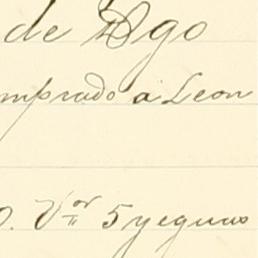 de Dgo
mprado a Leon
0. Vor 5 yeguas